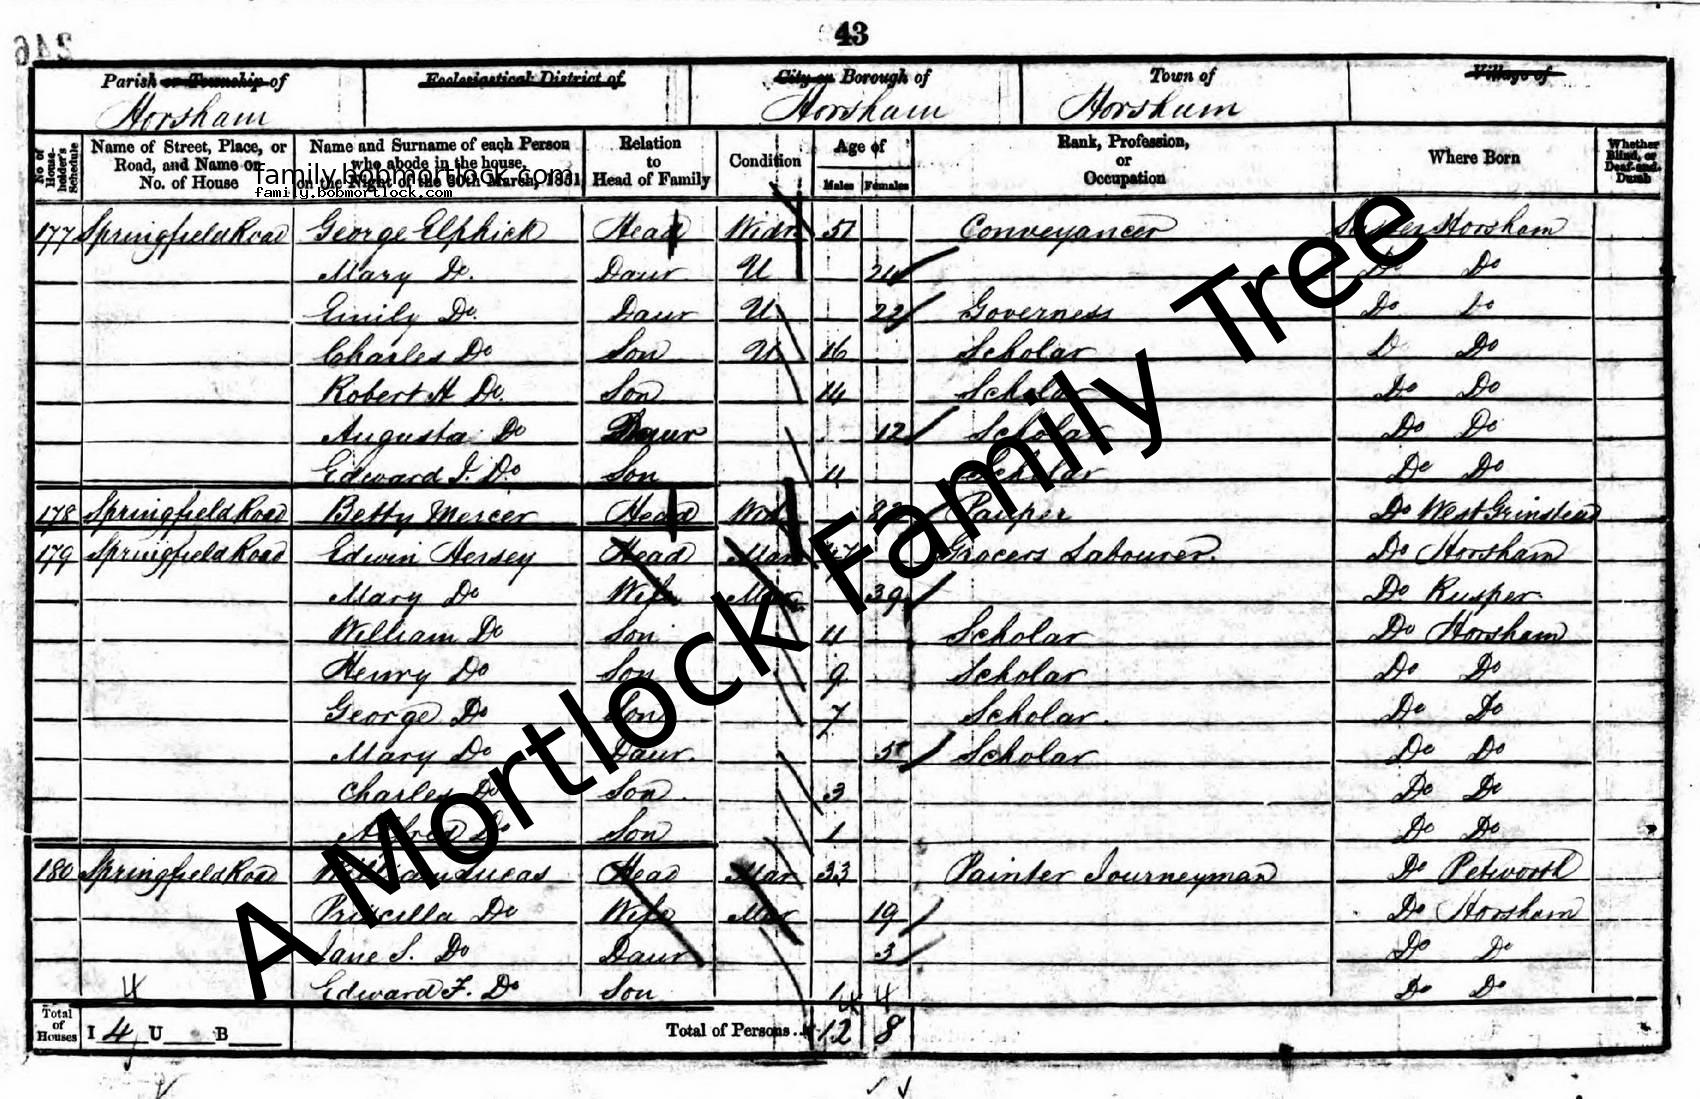 43
246
Parish or Township of
Ecclesiastical District of
City or Borough of
Town of
Village of
Horsham
Horsham
Horsham
No. of House-holder's Schedule
Name of Street, Place, or Road, and Name or No. of House
Name and Surname of each Person who abode in the house, on the Night of the 30th March, 1851
Relation to Head of Family
Condition
Age of
Males
Females
Rank, Profession, or Occupation
Where Born
Whether Blind, or Deaf-and-Dumb
family.bobmortlock.com
family.bobmortlock.com
177 Springfield Road George Elphick Head Widr 51 Conveyancer Sussex Horsham
Mary Do. Daur U Do Do
Emily Do. Daur U 22 Governess Do Do
Charles Do Son U 16 Scholar D Do
Robert H Do. Son 14 Scholar Do Do
Augusta Do Daur 12 Scholar Do Do
Edward J. Do. Son 11 Scholar Do Do
178 Springfield Road Betty Mercer Head Wid Pauper Do West Grinstead
179 Springfield Road Edwin Hersey Head Mar Grocers Labourer. Do Horsham
Mary Do Wife Mar 39 Do Rusper
William Do Son 11 Scholar Do Horsham
Henry Do Son 9 Scholar Do Do
George Do Son 7 Scholar. Do Do
Mary Do Daur. 5 Scholar Do Do
Charles Do Son 3 Do Do
Alfred Do Son 1 Do Do
180 Springfield Road William Lucas Head Mar 33 Painter Journeyman Do Petworth
Priscilla Do Wife Mar 19 Do Horsham
Jane S. Do Daur 3 Do Do
Edward F. Do Son 1 Do Do
4
4 4
Total of Houses I 4 U B Total of Persons... 12 8
A Mortlock Family Tree